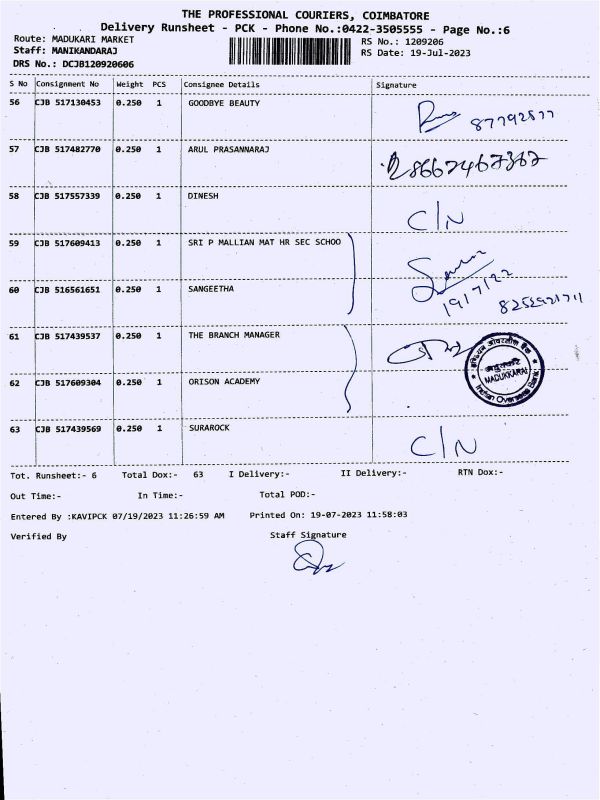 THE PROFESSIONAL COURIERS, COIMBATORE
Delivery Runsheet - PCK - Phone No.:0422-3505555 - Page No.:6
Route: MADUKARI MARKET RS No.: 1209206
Staff: MANIKANDARAJ RS Date: 19-Jul-2023
DRS No.: DCJB120920606
S No Consignment No Weight PCS Consignee Details Signature
56 CJB 517130453 0.250 1 GOODBYE BEAUTY
57 CJB 517482770 0.250 1 ARUL PRASANNARAJ 8667467367
58 CJB 517557339 0.250 1 DINESH C/N
59 CJB 517609413 0.250 1 SRI P MALLIAN MAT HR SEC SCHOO
60 CJB 516561651 0.250 1 SANGEETHA 19/7/22
61 CJB 517439537 0.250 1 THE BRANCH MANAGER
MADUKKARAI
Indian Overseas Bank
62 CJB 517609304 0.250 1 ORISON ACADEMY
63 CJB 517439569 0.250 1 SURAROCK C/N
Tot. Runsheet:- 6 Total Dox:- 63 I Delivery:- II Delivery:- RTN Dox:-
Out Time:- In Time:- Total POD:-
Entered By :KAVIPCK 07/19/2023 11:26:59 AM Printed On: 19-07-2023 11:58:03
Verified By Staff Signature